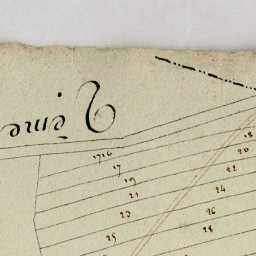 1716
17
18
19
20
21
22
23
24
25
26
28